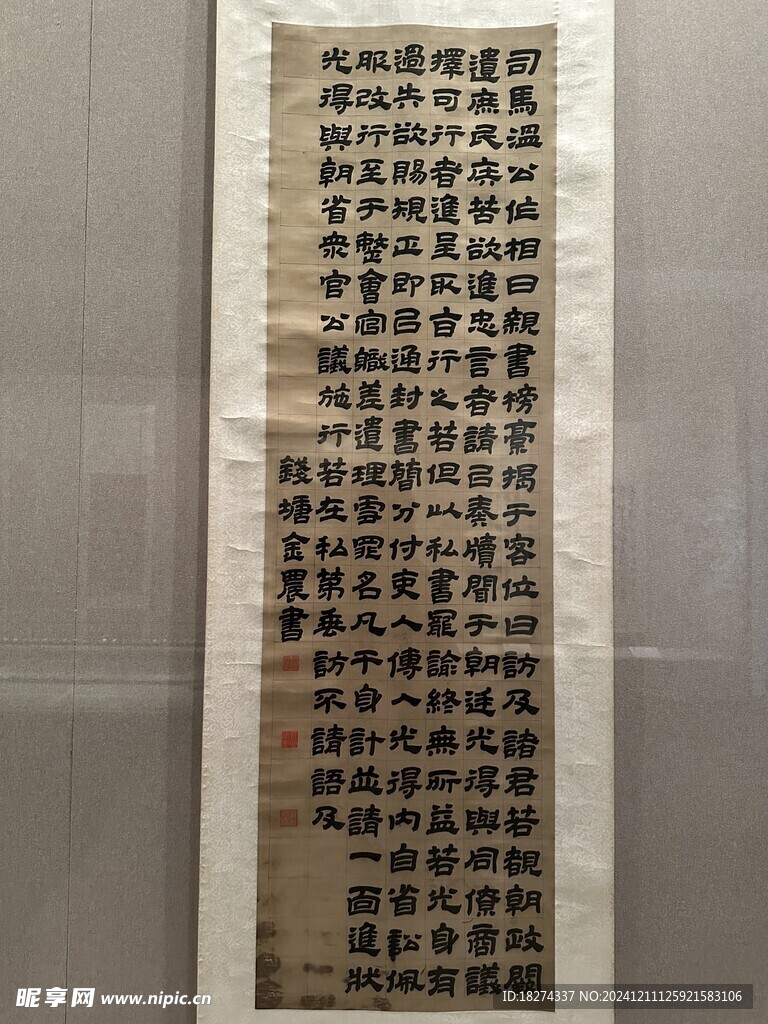 司馬溫公作相日親書榜稾揭于客位曰訪及諸君若覩朝政闕
遺庶民疾苦欲進忠言者請㠯奏牘聞于朝廷光得與同僚商議
擇可行者進呈取旨行之若但以私書寵諭終無所益若光身有
過失欲賜規正即㠯通封書簡分付吏人傳入光得內自省訟佩
服改行至于整會官職差遣理雪罪名凡干身計並請一面進狀
光得與朝省衆官公議施行若在私第垂訪不請語及
錢塘金農書
昵享网 www.nipic.cn
ID:18274337 NO:20241211125921583106